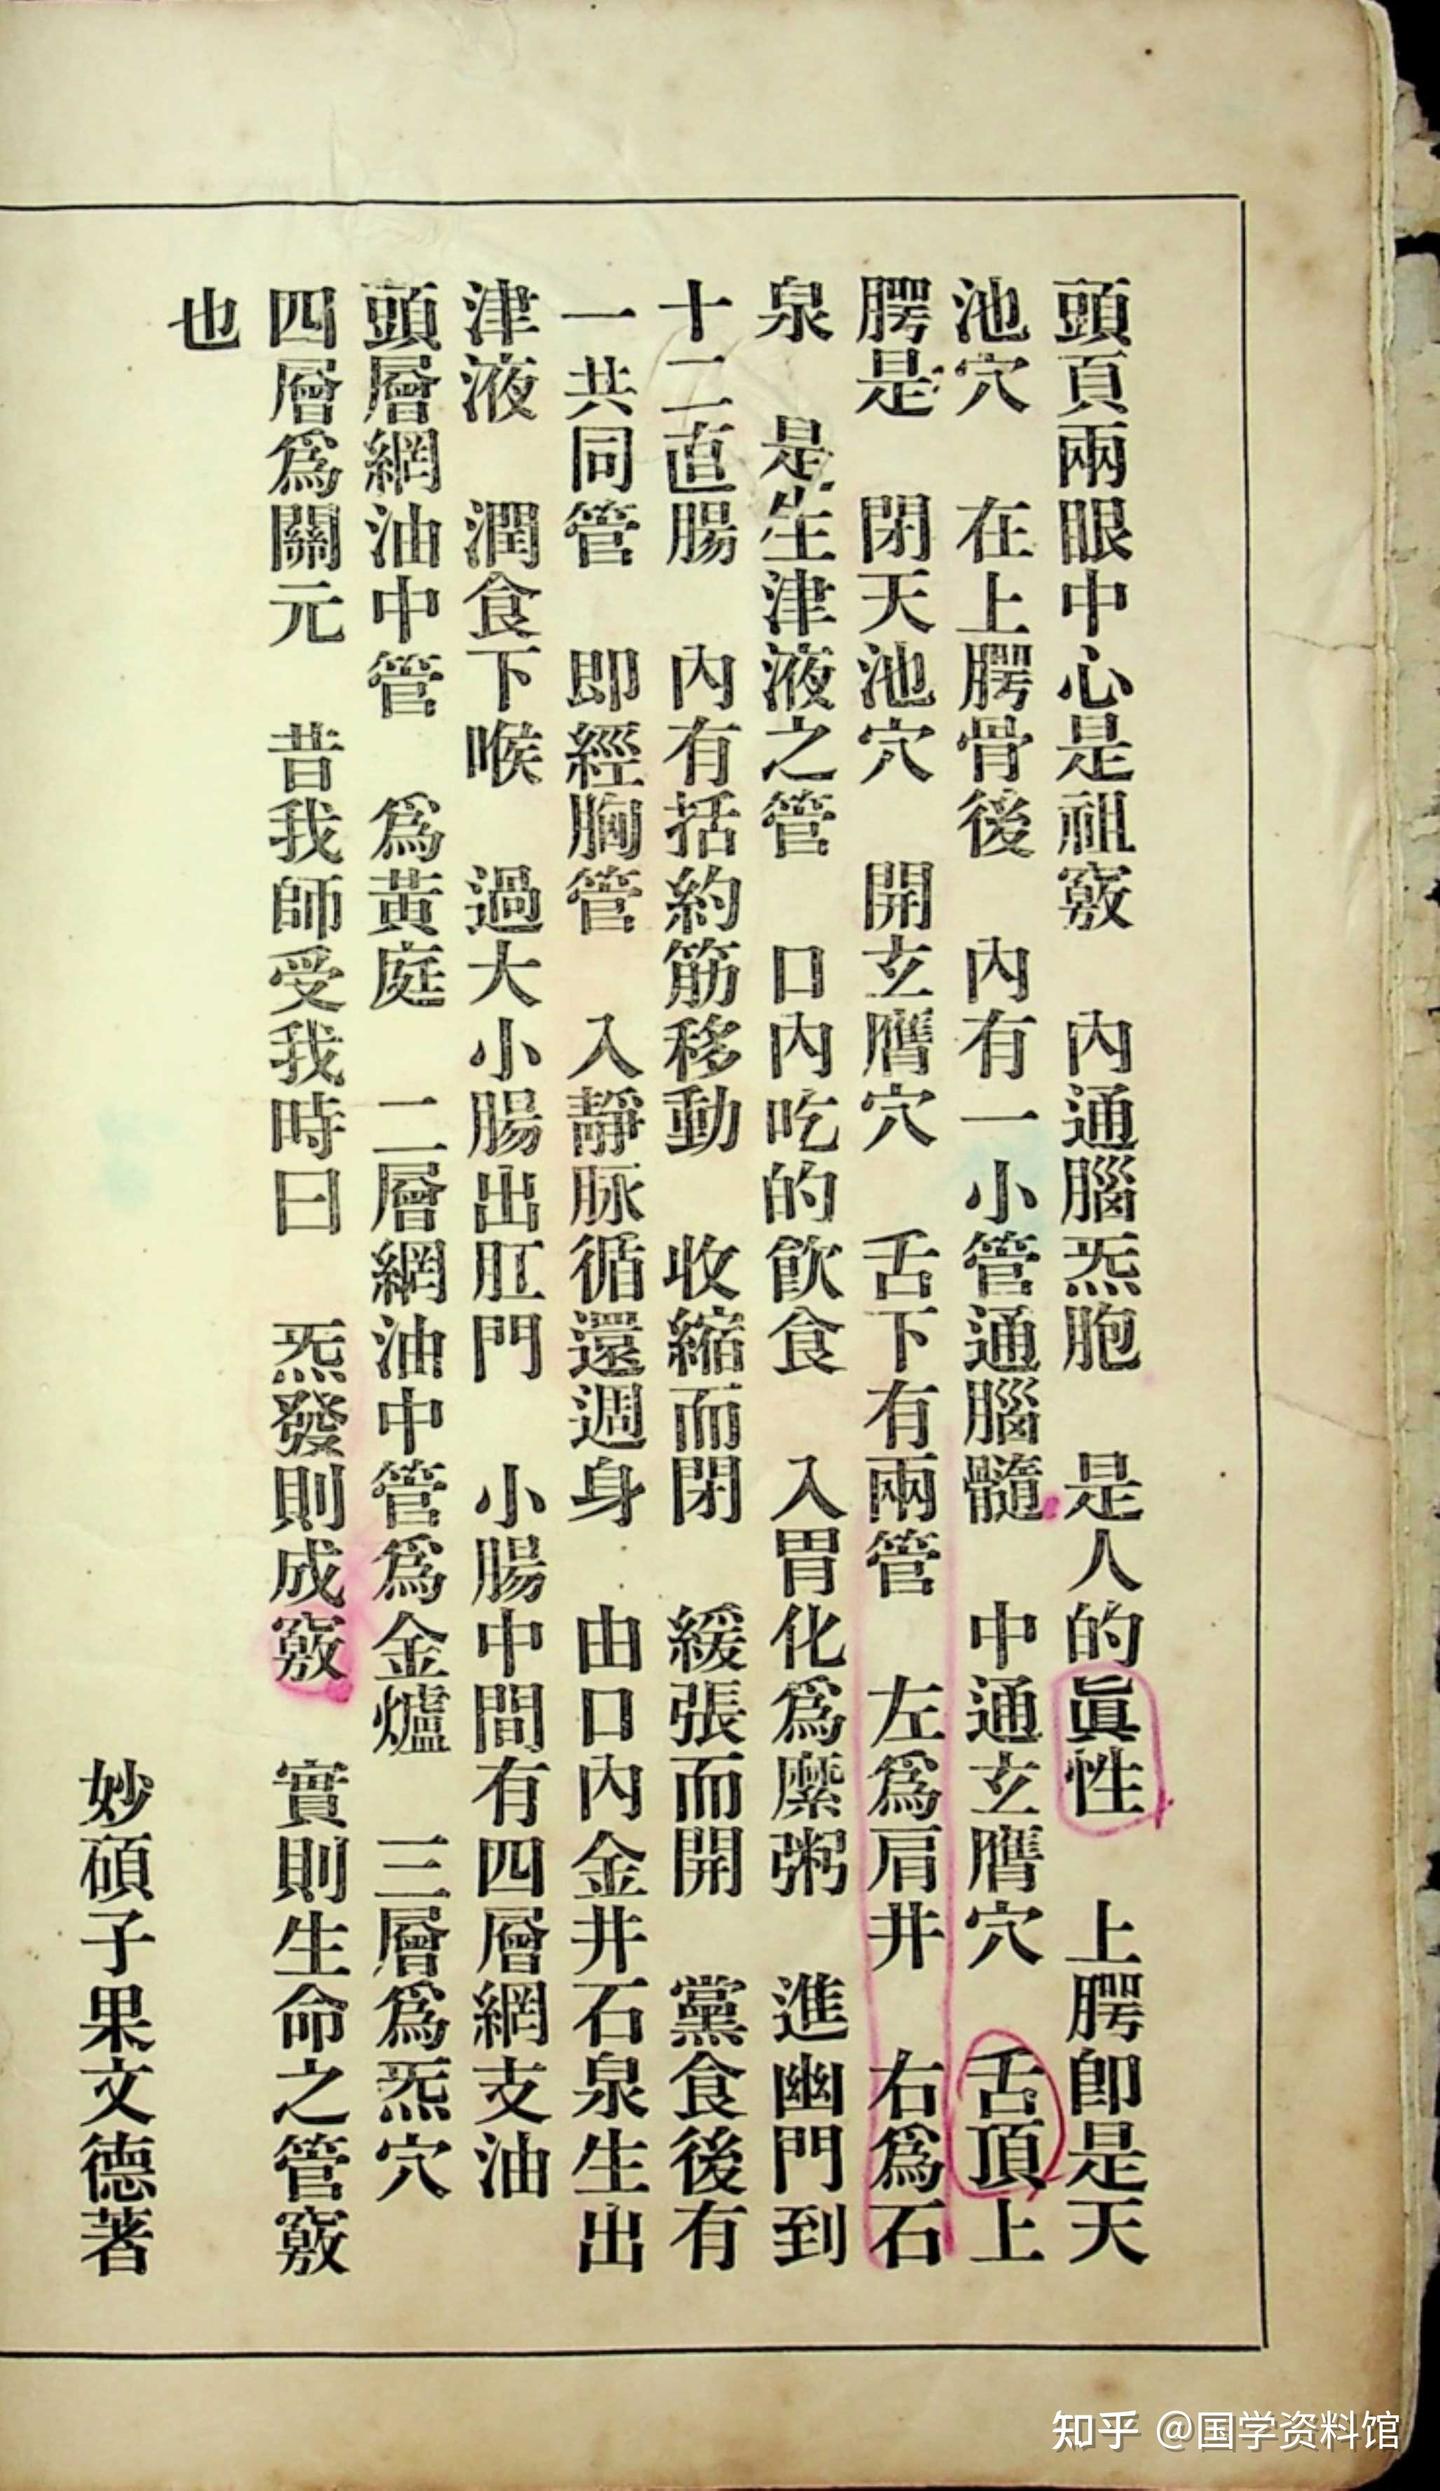 頭頁兩眼中心是祖竅　內通腦炁胞　是人的眞性　上腭即是天
池穴　在上腭骨後　內有一小管通腦髓　中通玄膺穴　舌頂上
腭是　閉天池穴　開玄膺穴　舌下有兩管　左爲肩井　右爲石
泉　是生津液之管　口內吃的飲食　入胃化爲糜粥　進幽門到
十二直腸　內有括約筋移動　收縮而閉　緩張而開　黨食後有
一共同管　即經胸管　入靜脉循還週身　由口內金井石泉生出
津液　潤食下喉　過大小腸出肛門　小腸中間有四層網支油
頭層網油中管　爲黃庭　二層網油中管爲金爐　三層爲炁穴
四層爲關元　昔我師受我時曰　炁發則成竅　實則生命之管竅
也
妙碩子果文德著
知乎 @国学资料馆